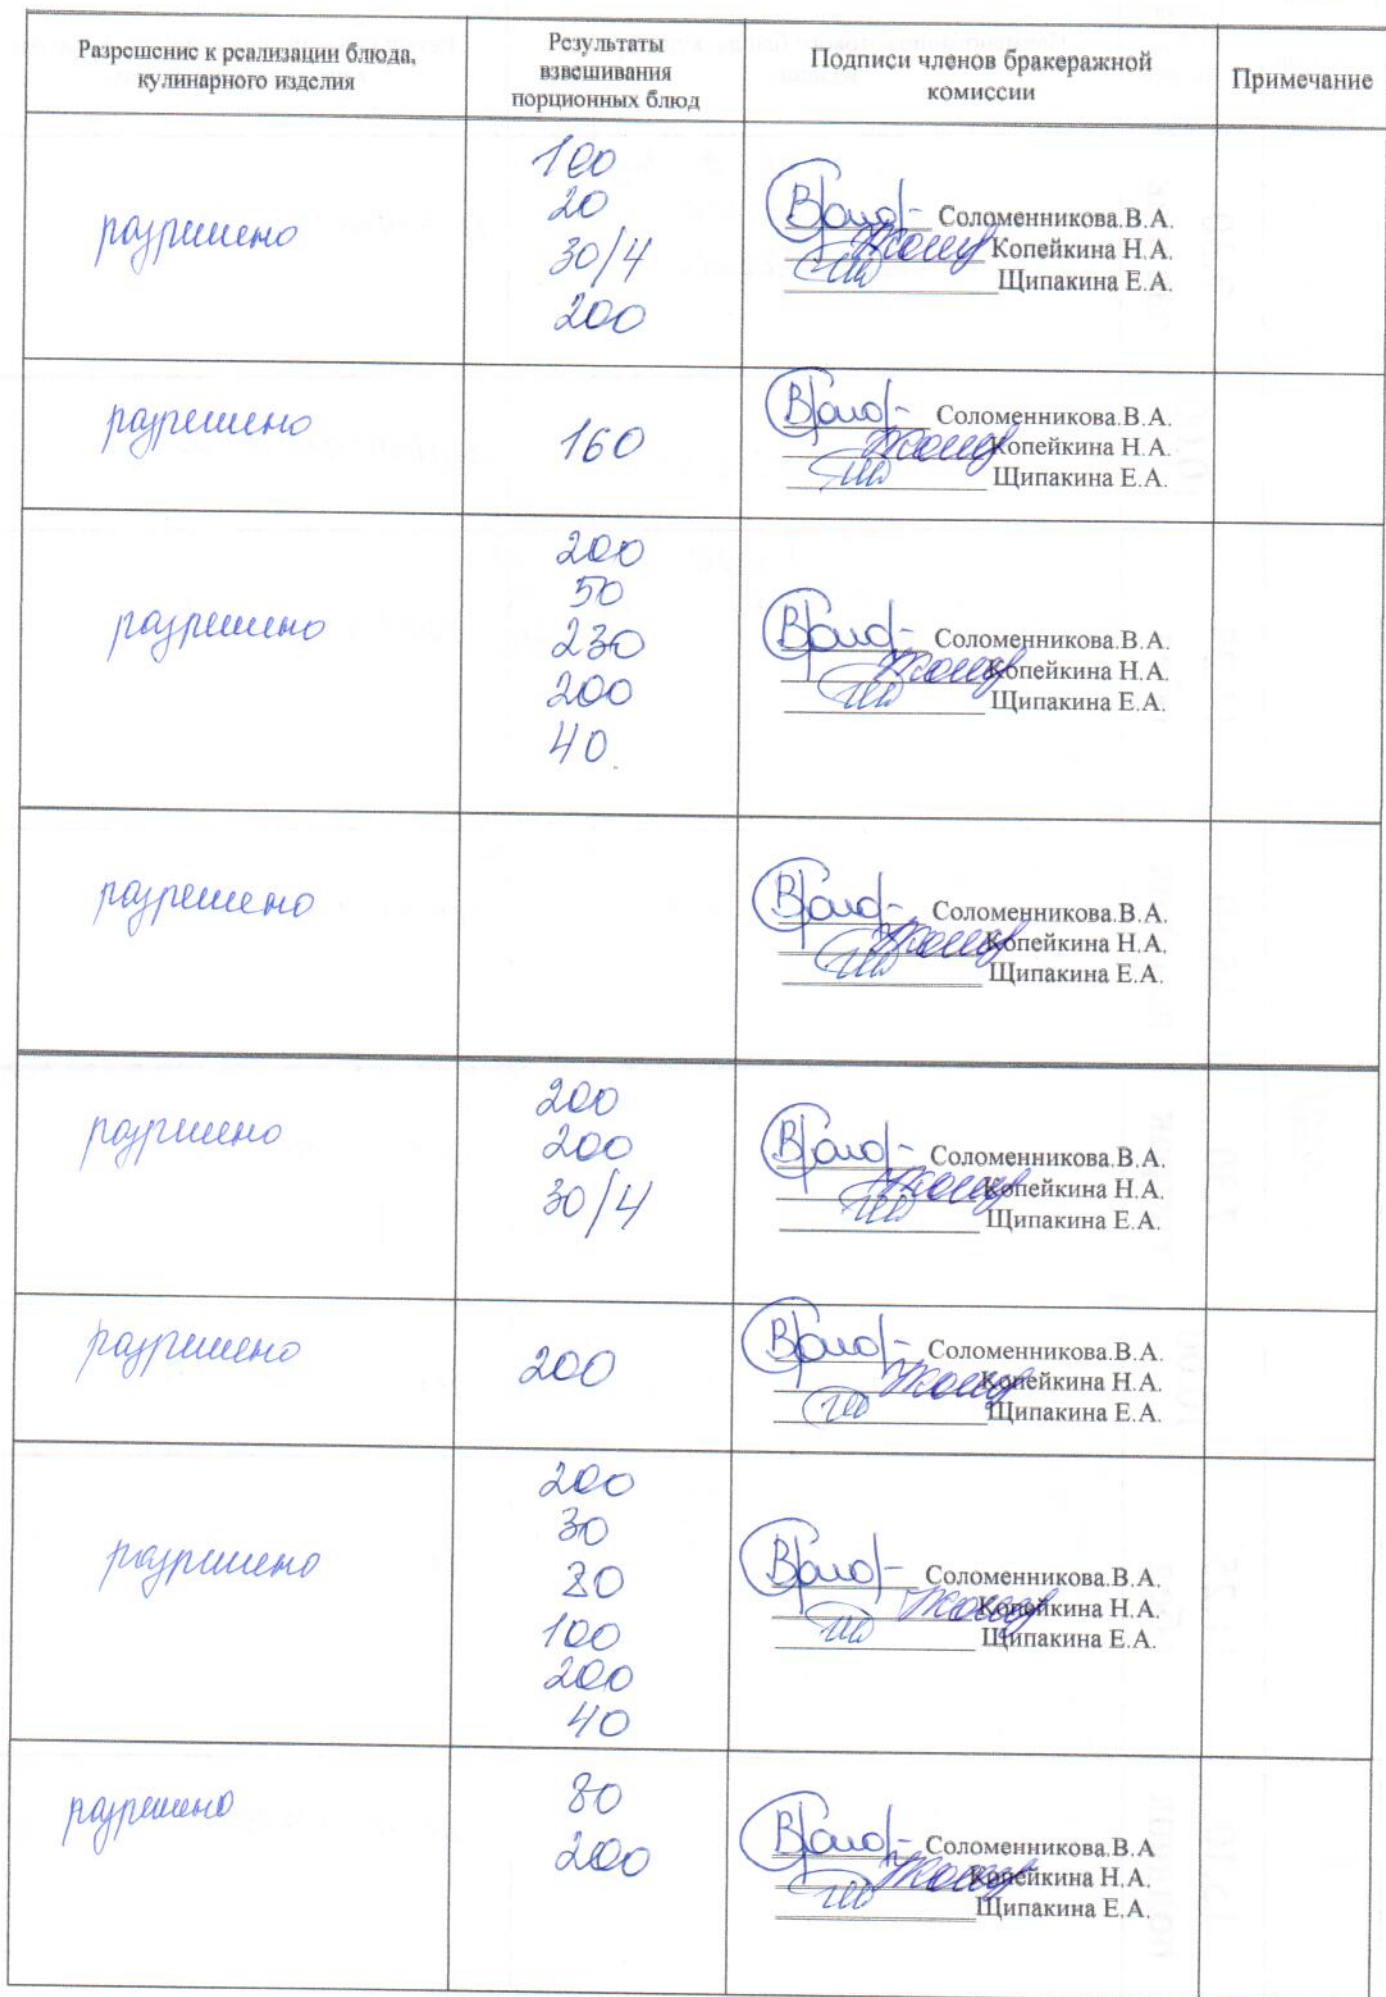 Разрешение к реализации блюда,
кулинарного изделия
Результаты
взвешивания
порционных блюд
Подписи членов бракеражной
комиссии
Примечание
разрешено
100
20
30/4
200
Соломенникова.В.А.
Копейкина Н.А.
Щипакина Е.А.
разрешено
160
Соломенникова.В.А.
Копейкина Н.А.
Щипакина Е.А.
разрешено
200
50
230
200
40.
Соломенникова.В.А.
Копейкина Н.А.
Щипакина Е.А.
разрешено
Соломенникова.В.А.
Копейкина Н.А.
Щипакина Е.А.
разрешено
200
200
30/4
Соломенникова.В.А.
Копейкина Н.А.
Щипакина Е.А.
разрешено
200
Соломенникова.В.А.
Копейкина Н.А.
Щипакина Е.А.
разрешено
200
30
80
100
200
40
Соломенникова.В.А.
Копейкина Н.А.
Щипакина Е.А.
разрешено
80
200
Соломенникова.В.А
Копейкина Н.А.
Щипакина Е.А.